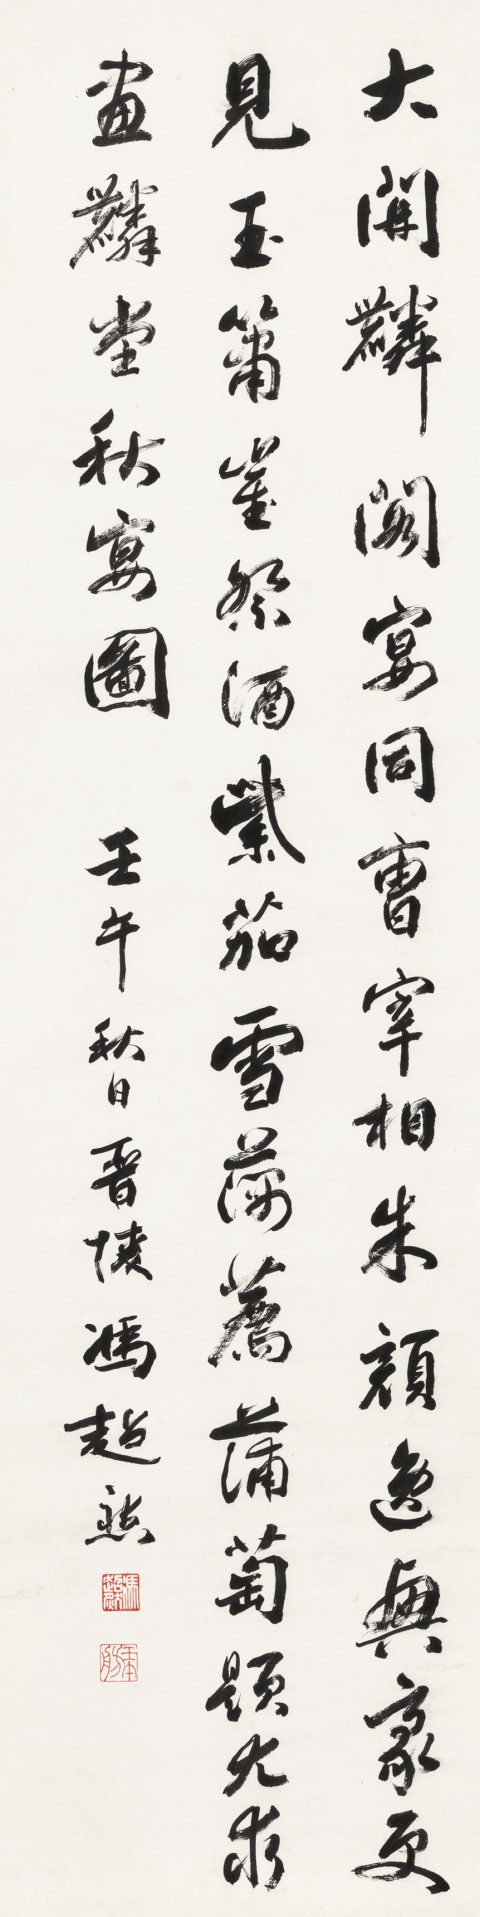 大開麟閣宴同曹宰相朱顏逸興豪更
見玉簫崔祭酒紫茄雪藕薦蒲萄題尤求
畫麟堂秋宴圖 壬午秋日晉陵馮超然